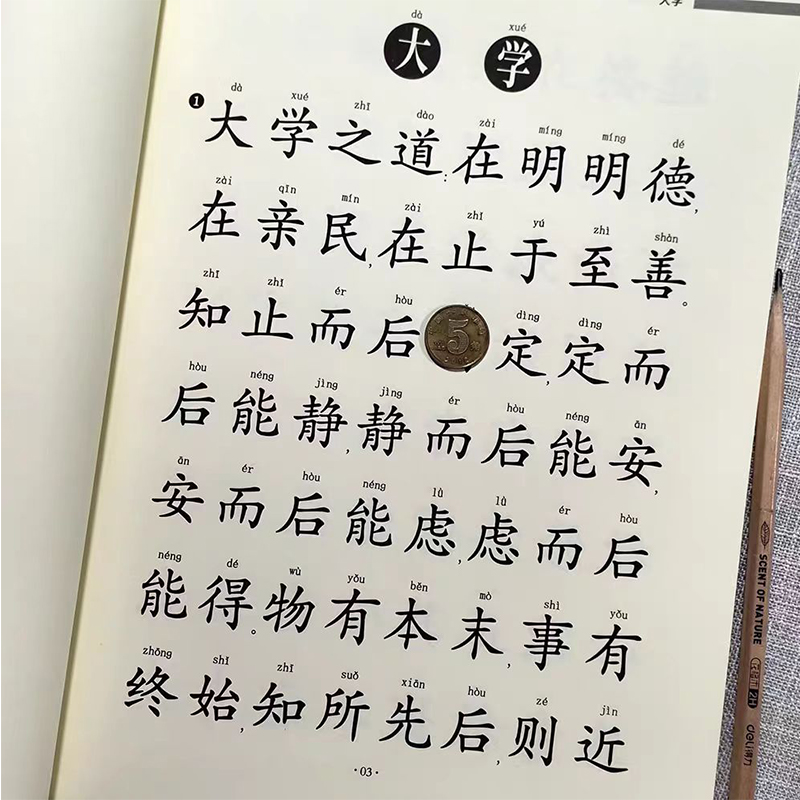 大学
dà xué
大学
dà xué zhī dào zài míng míng dé
1 大学之道:在明明德,
zài qīn mín zài zhǐ yú zhì shàn
在亲民,在止于至善。
zhī zhǐ ér hòu dìng dìng ér
知止而后 5 定,定而
hòu néng jìng jìng ér hòu néng ān
后能静,静而后能安,
ān ér hòu néng lǜ lǜ ér hòu
安而后能虑,虑而后
néng dé wù yǒu běn mò shì yǒu
能得。物有本末,事有
zhōng shǐ zhī suǒ xiān hòu zé jìn
终始,知所先后,则近
·03·
SCENT OF NATURE
2H
deli得力